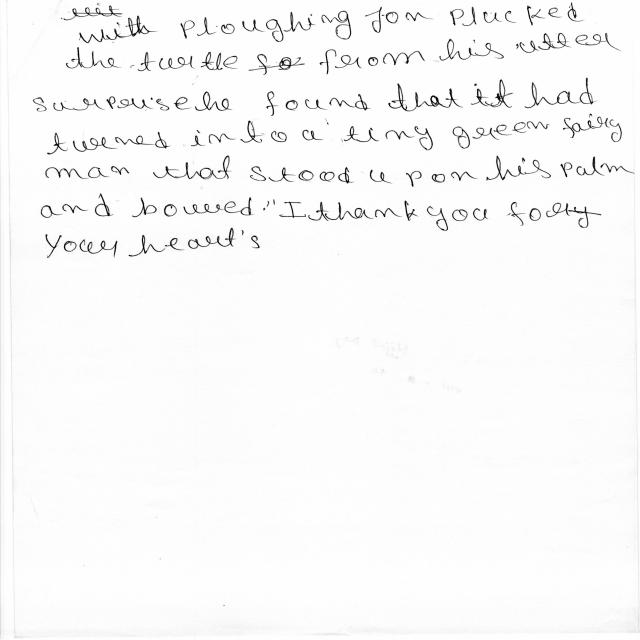 with ploughing Jon plucked
the turtle from his utter
surprise he found that it had
turned into a tiny green fairy
man that stood upon his palm
and bowed. "I thank you for
your heart's